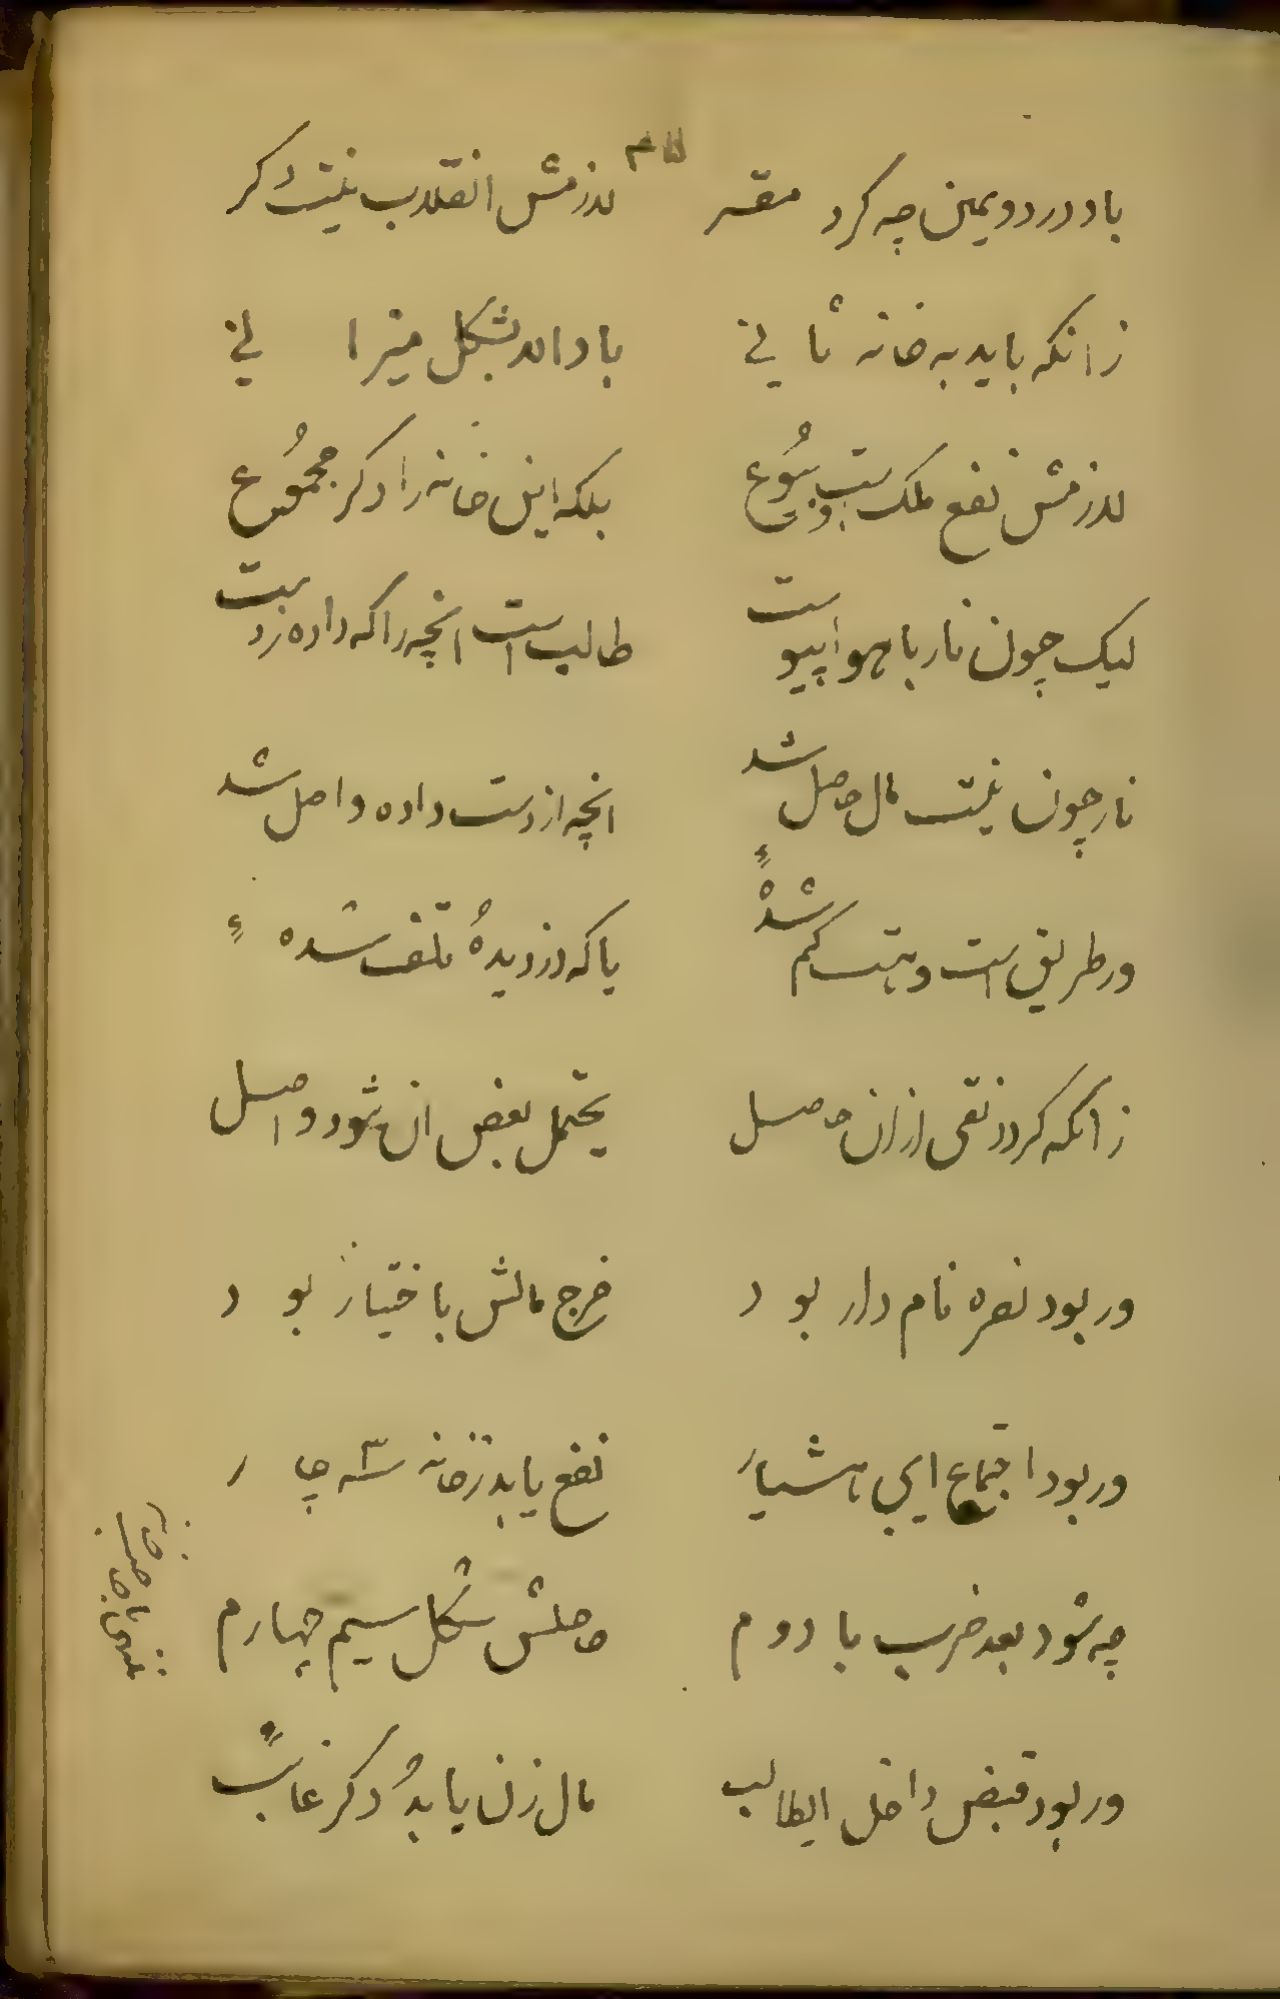 باد در دویمین چه کرد مقر لازمش انقلاب نیست دکر
زانکه باید به خانه ثانی باد اندر بشکل میزانی
لازمش نفع ملک است و بیوع بلکه این خانه را دکر مجموع
لیک چون نار با هوا پیوست طالب است انچه را که داده ز دست
نار چون نیست مال حاصل شد انچه از دست داده واصل شد
ور طریق است و هست کم شده یا که دزدیده تلف شده
زانکه کردد نقی ازان حاصل یحتمل بعض ان شود واصل
ور بود نصره نام دار بود خرج مالش باختیار بود
ور بود اجتماع ای هشیار نفع یابد ز خانه سه چار
چه شود بعد ضرب با دوم حاصلش شکل سیم چهارم
ور بود قبض داخل ایطالب مال زن یابد دکر غائب